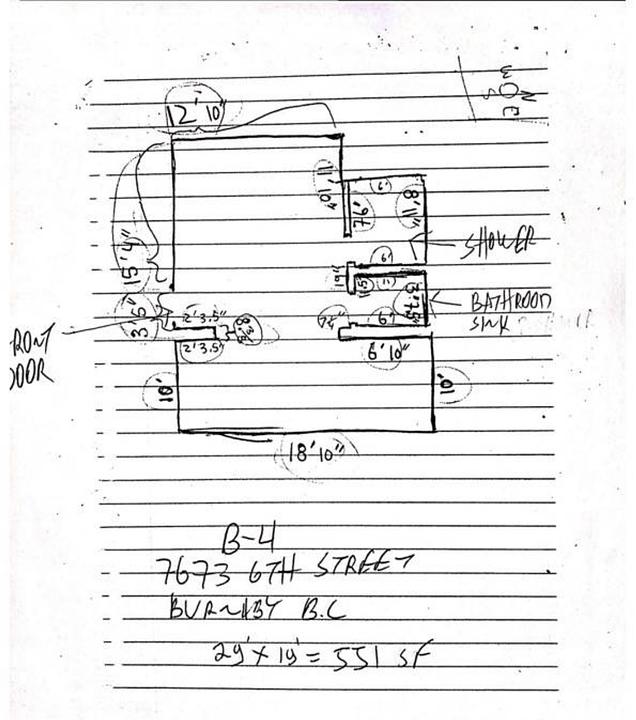 N
W O E
S
12' 10"
11' 10"
6'
7'6'
8' 11"
SHOWER
15' 4"
6'
19"
3' 5"
BATHROOM
SINK
2' 3.5"
6'
RONT
DOOR
2' 3.5"
6' 10"
10'
10'
18' 10"
B-4
7673 6TH STREET
BURNABY B.C
29' x 19' = 551 SF